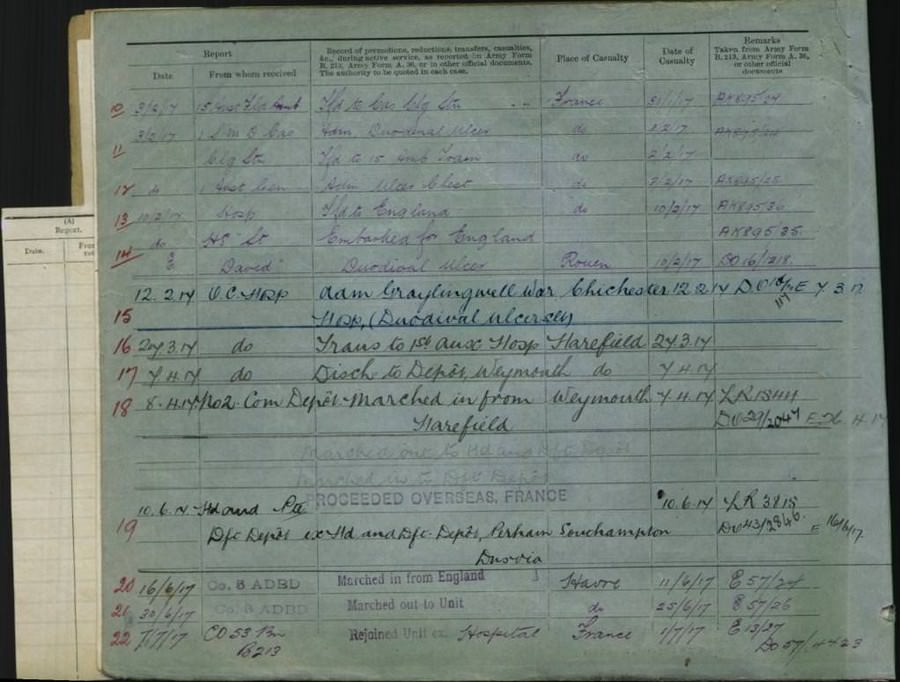 Report
Record of promotions, reductions, transfers, casualties, &c., during active service, as reported on Army Form
B. 213, Army Form A. 36, or in other official documents.
The authority to be quoted in each case.
Place of Casualty
Date of Casualty
Remarks
Taken from Army Form B. 213, Army Form A. 36, or other official documents
Date
From whom received
(A)
Report.
Date.
10 3/2/17 15 Aust Fld Amb Tfd to Cas Clg Stn France 31/1/17 AK895/24
3/2/17 1 S M D Cas Adm. Duodenal Ulcer do 1/2/17
11 Clg Stn Tfd to 15 Amb Train do 2/2/17
12 do 1 Aust Gen Adm Ulcer Chest do 2/2/17 AK895/25
13 10/2/17 Hosp Tfd to England do 10/2/17 AK895 36
14 do HS "St Embarked for England AK895 35
David" Duodival Ulcer Rouen 10/2/17 DO 16/1218
12.2.17 O.C. Hosp adm Graylingwell War Chichester 12.2.17 7 3 17
15 Hosp, (Duodival Ulcer
16 27.3.17 do Trans to 1st Aux Hosp Harefield 27.3.17
17 7.4.17 do Disch to Depôt, Weymouth do 7.4.17
18 8.4.17 No2 Com Depôt Marched in from Weymouth 7.4.17 LR
Harefield DO29/2047
Marched out to Hd and Dft Depôt
Marched in to Dft Depôt
PROCEEDED OVERSEAS, FRANCE
10.6.17 Hd and 10.6.17 LR 3815
19 Dft Depôt ex Hd and Dft Depôt, Perham Southampton DO43/2846 E 16/6/17
20 16/6/17 Co. B ADBD Marched in from England Havre 11/6/17 E 57/24
21 30/6/17 Co. B ADBD Marched out to Unit do 25/6/17 E 57/26
22 7/7/17 CO 53 Bn Rejoined Unit ex Hospital France 1/7/17 E 13/27
B213 DO57/4423